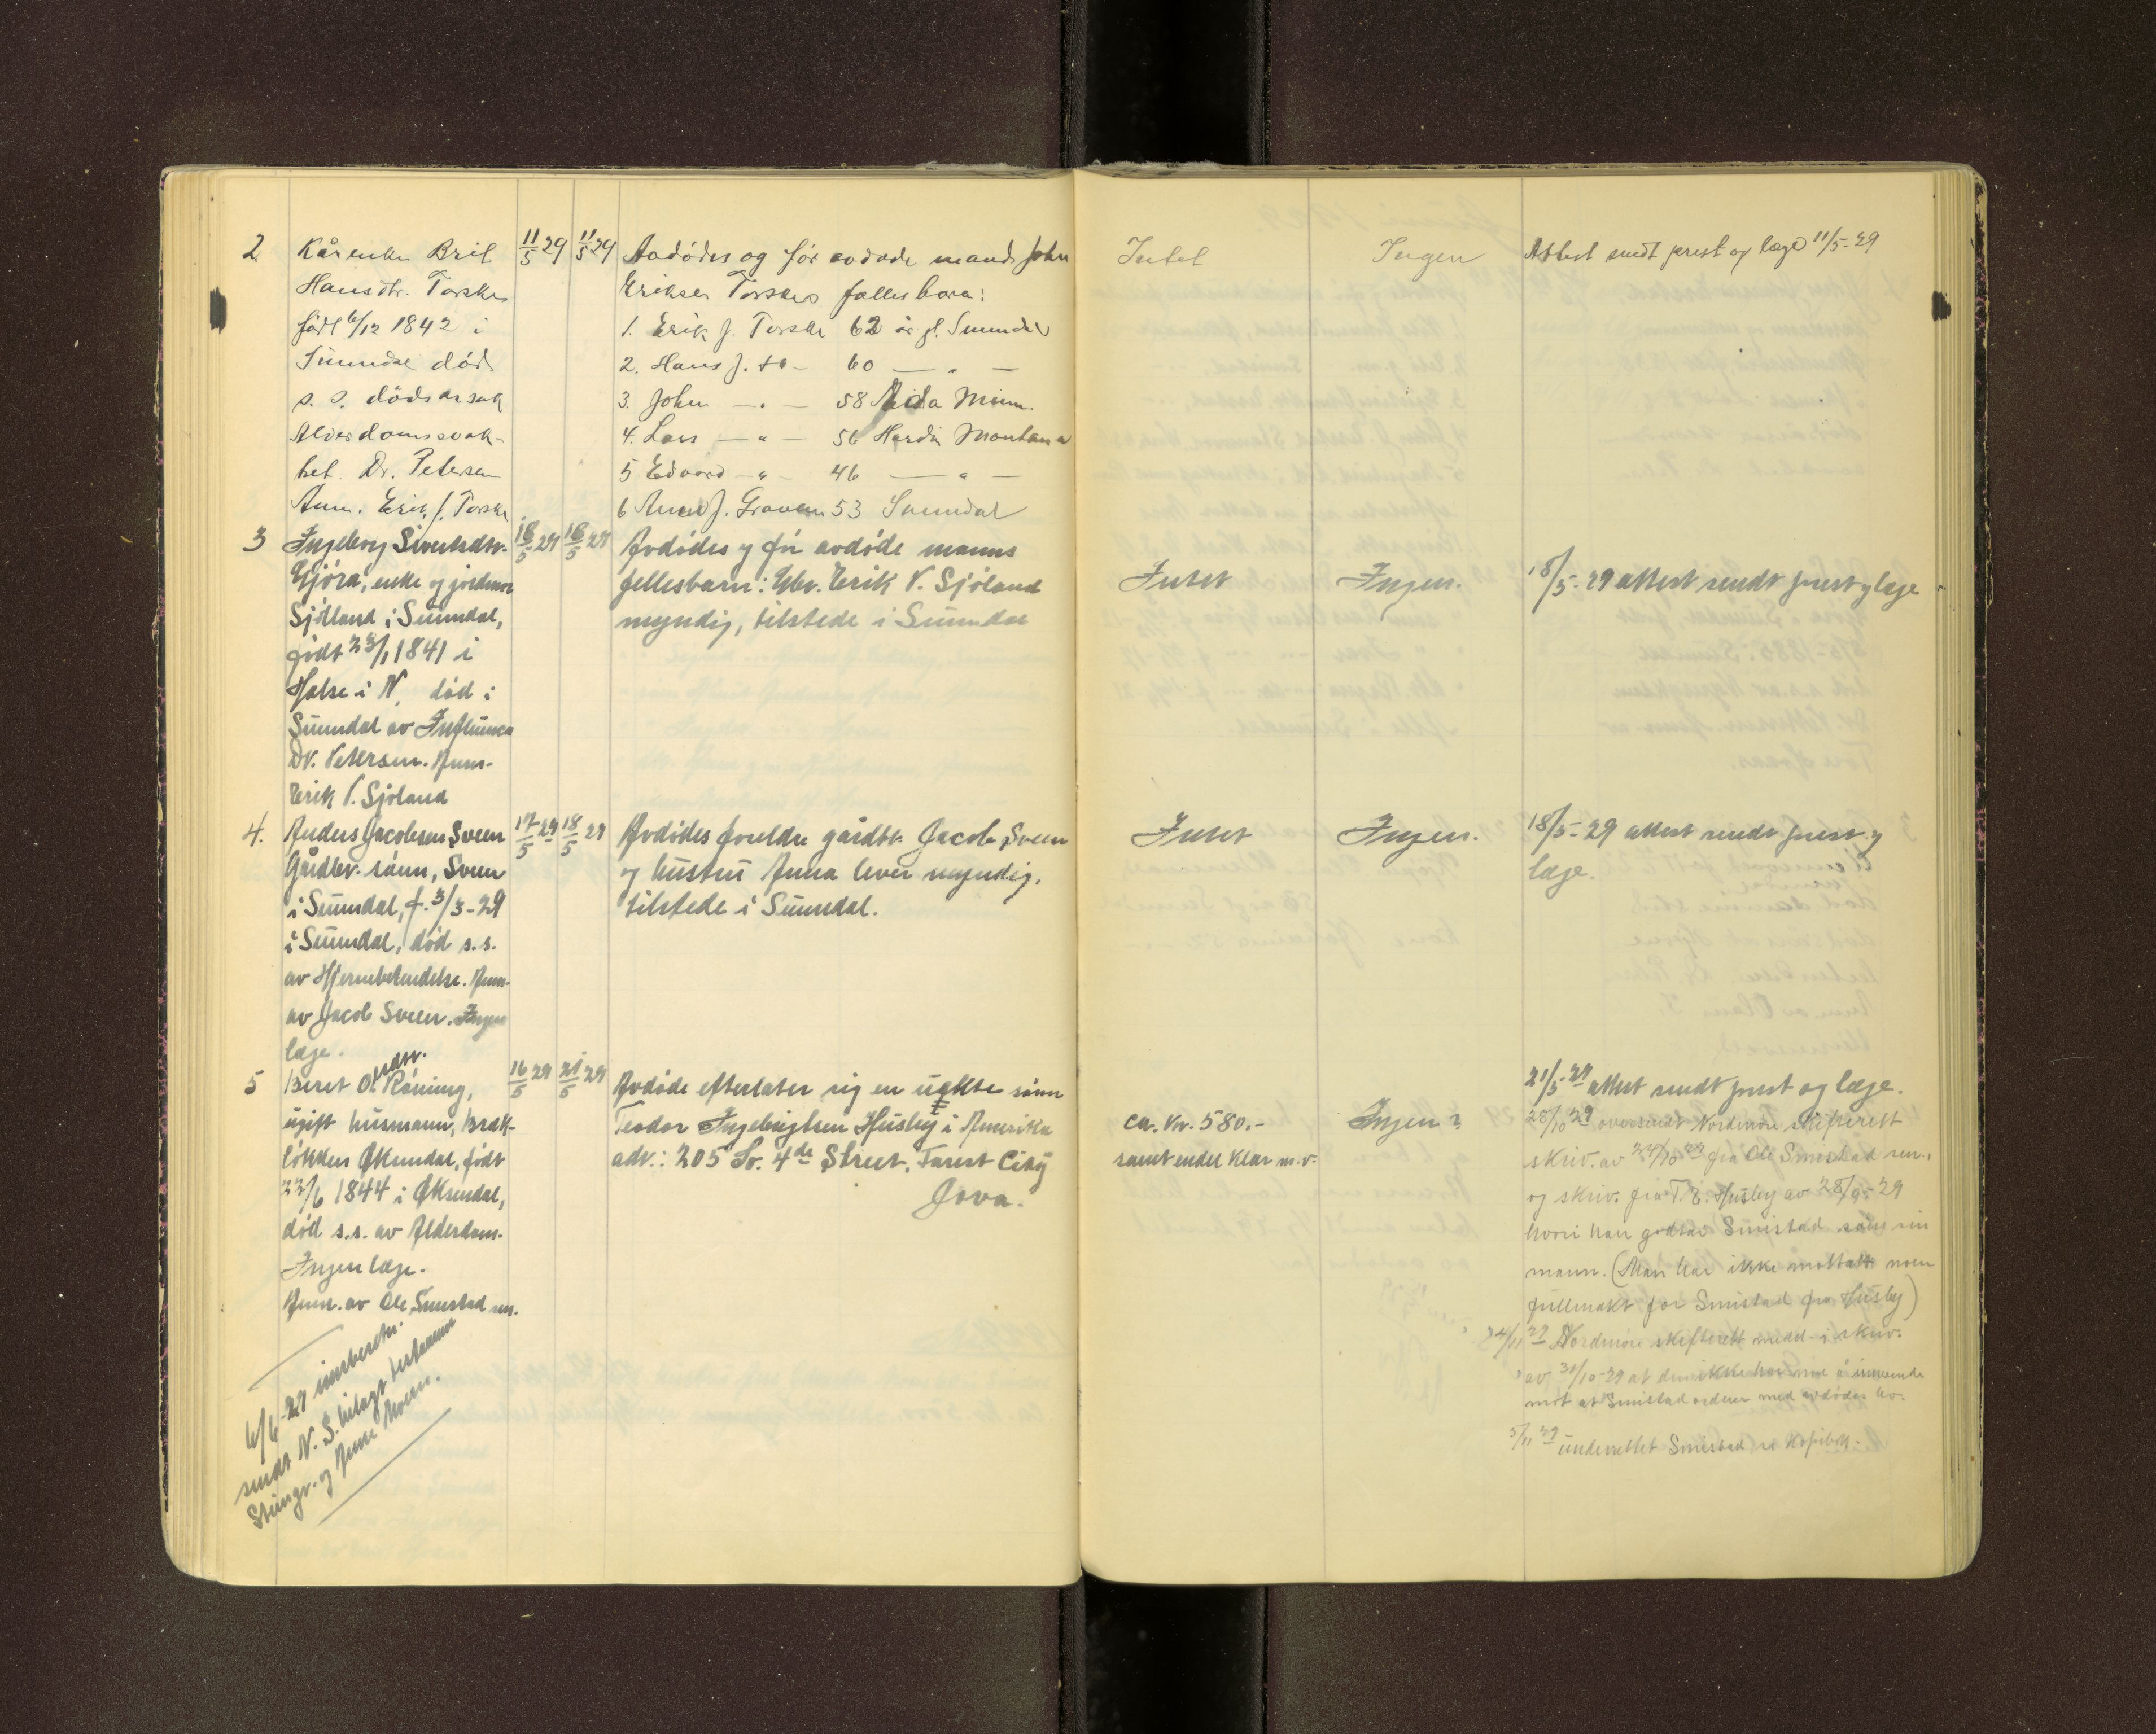 2
Kårenke Brit
Hansdtr. Torske
født 6/12 1842 i
Sunndal død
s. s. dødsarsak
Alderdomssvak-
het Dr. Petersen
Anm. Erik J. Torske
11/5 29
11/5 29
Avdødes og før avdøde mands John
Eriksen Torskes felles barn:
1. Erik J. Torske 62 år g. Sunndal
2. Hans J. do - 60 — " —
3. John — " — 58 Aida Minn.
4. Lars — " — 56 Hardin Montana
5 Edvard — " — 46 — " —
6 Anne J. Graven 53 Sunndal
Intet
Ingen
Attest sendt prest og læge 11/5-29
3
Ingeborg Sivertsdtr.
Gjøra, enke og jordmor
Sjøland i Sunndal,
født 23/1 1841 i
Halse i N. død i
Sunndal av Influensa
Dr. Petersen. Anm.
Erik V. Sjøland
18/5 29
18/5 29
Avdødes og før avdøde manns
fellesbarn: Gbr. Erik V. Sjøland
myndig, tilstede i Sunndal
Intet
Ingen.
18/5-29 attest sendt prest og læge
4.
Anders Jacobsen Sveen
Gårdbr. sønn, Sveen
i Sunndal, f. 3/3-29
i Sunndal, død s.s.
av Hjernebetendelse. Anm.
av Jacob Sveen. Ingen
læge.
17/5 29
18/5 29
Avdødes foreldre gårdbr. Jacob Sveen
og hustru Anna lever myndig,
tilstede i Sunndal.
Intet
Ingen.
18/5-29 attest sendt prest og
læge.
5
Beret O.datr. Røning,
ugift husmann, Bræk-
løkken Øksendal, født
22/6 1844 i Øksendal,
død s.s. av Alderdom.
Ingen læge.
Anm. av Ole Smistad sen.
16/5 29
21/5 29
Avdøde efterlater sig en uekte sønn
Teodor Ingebrigtsen Husby i Amerika
adr.: 205 So. 4de Street, Forest City
Jova.
ca. kr. 580.-
samt endel klær m.v.
Ingen?
21/5-29 attest sendt prest og læge.
28/10 29 oversendt Nordmøre skifterett
skriv. av 24/10 29 fra Ole Smistad sen.
og skriv. fra T. E. Husby av 28/9-29
hvori han godtar Smistad som sin
mann. (Man har ikke mottatt noen
fullmakt for Smistad fra Husby)
4/11 29 Nordmøre skifterett medd. i skriv.
av 31/10-29 at den ikke har noe å innvende
mot at Smistad ordner med avdødes bo.
5/11 29 underrettet Smistad se kopibok.
6/6-29 innberetn.
sendt N. S. bilagt testamente
og Anne Moen.